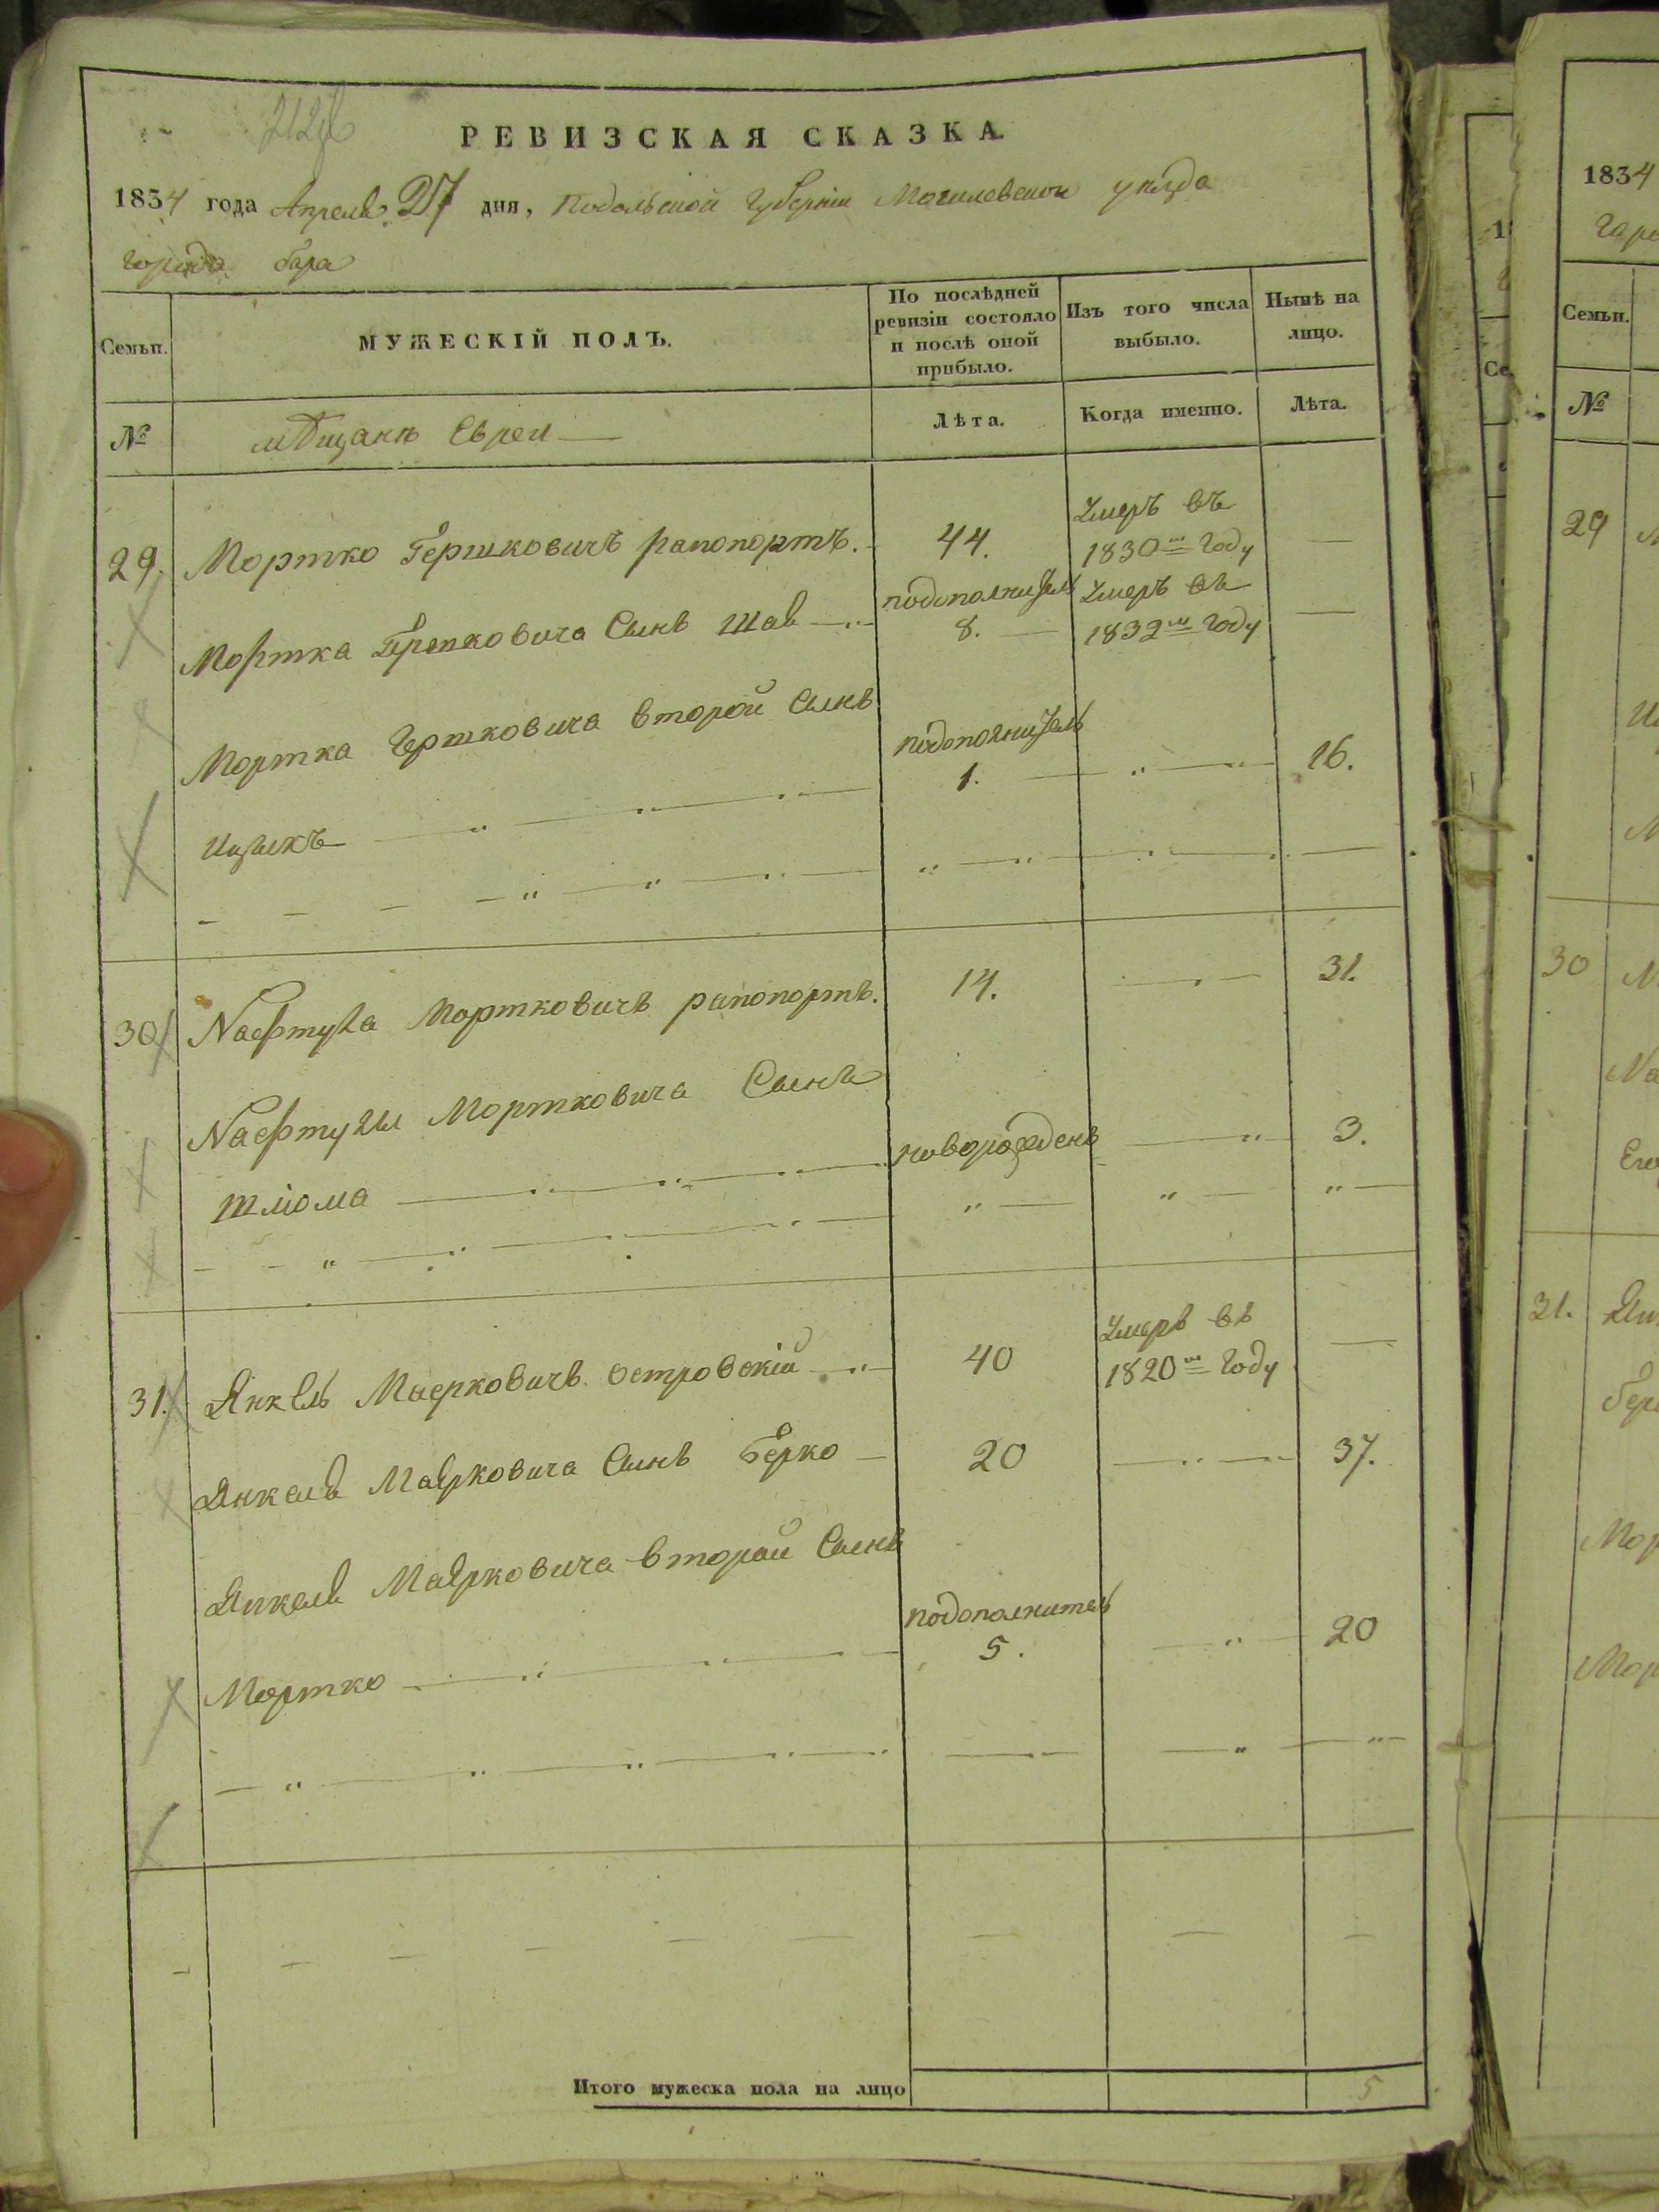 212об
РЕВИЗСКАЯ СКАЗКА.
1834 года Апреля 27 дня, Подольской Губерніи Могилевского уѣзда
города бара
Семьи.
МУЖЕСКІЙ ПОЛЪ.
По послѣдней ревизіи состояло и послѣ оной прибыло.
Изъ того числа выбыло.
Нынѣ на лицо.
№
мѣщанѣ Евреи
Лѣта.
Когда именно.
Лѣта.
29. Мортко Гершковичъ рапопортъ. 44. Умеръ въ 1830м году —
Мортка Гершковича Сынъ Шая подополнитель 8. Умеръ въ 1832м году —
Мортка Гершковича второй Сынъ
Ицыкъ подополнитель 1. 16.
30 Nафтула Мортковичъ рапопортъ. 14. 31.
Nафтулы Мортковича Сынъ
Шлiома новорожденъ 3.
31. Янкель Маерковичъ островскій 40 Умеръ въ 1820м году —
Янкеля Маерковича Сынъ Берко 20 37.
Янкеля Маерковича второй Сынъ
Мортко подополнитель 5. 20
Итого мужеска пола на лицо 5
1834
Горо
Семьи.
№
29
30
31.